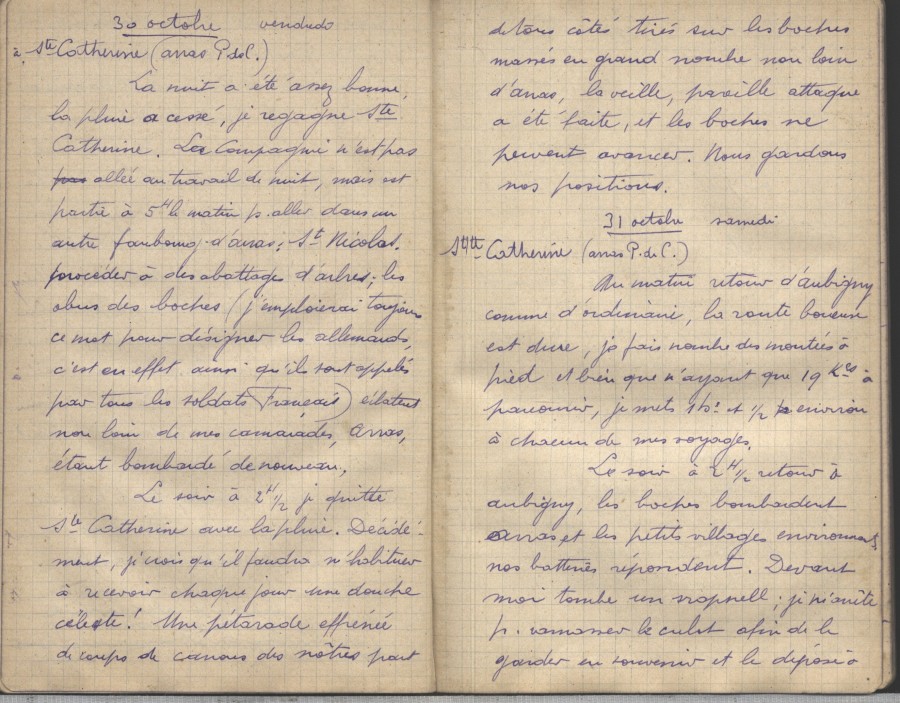 30 octobre vendredi
à Ste Catherine (arras P.deC.)
La nuit a été assez bonne,
la pluie a cessé, je regagne Ste
Catherine. La Compagnie n'est pas
pas allée au travail de nuit, mais est
partie à 5H le matin p. aller dans un
autre faubourg d'arras; St Nicolas.
procéder à des abattages d'arbres; les
obus des boches (j'emploierai toujours
ce mot pour désigner les allemands,
c'est en effet ainsi qu'ils sont appelés
par tous les soldats Français) éclatent
non loin de mes camarades, Arras,
étant bombardé de nouveau.
Le soir à 2H1/2 je quitte
Ste Catherine avec la pluie. Décidé-
ment, je crois qu'il faudra m'habituer
à recevoir chaque jour une douche
céleste! Une pétarade effrénée
de coups de canons des nôtres part
de tous côtés tirés sur les boches
massés en grand nombre non loin
d'arras, la veille, pareille attaque
a été faite, et les boches ne
peuvent avancer. Nous gardons
nos positions.
31 octobre samedi
Ste Catherine (arras P. de C.)
Au matin retour d'aubigny
comme d'ordinaire, la route boueuse
est dure, je fais nombre des montées à
pied et bien que n'ayant que 19 Kes à
parcourir, je mets 1h et 1/2 environ
à chacun de mes voyages.
Le soir à 2H1/2 retour à
aubigny, les boches bombardent
Arras, et les petits villages environnants,
nos batteries répondent. Devant
moi tombe un srapnell; je m'arrête
p. ramasser le culot afin de le
garder en souvenir et le dépose à